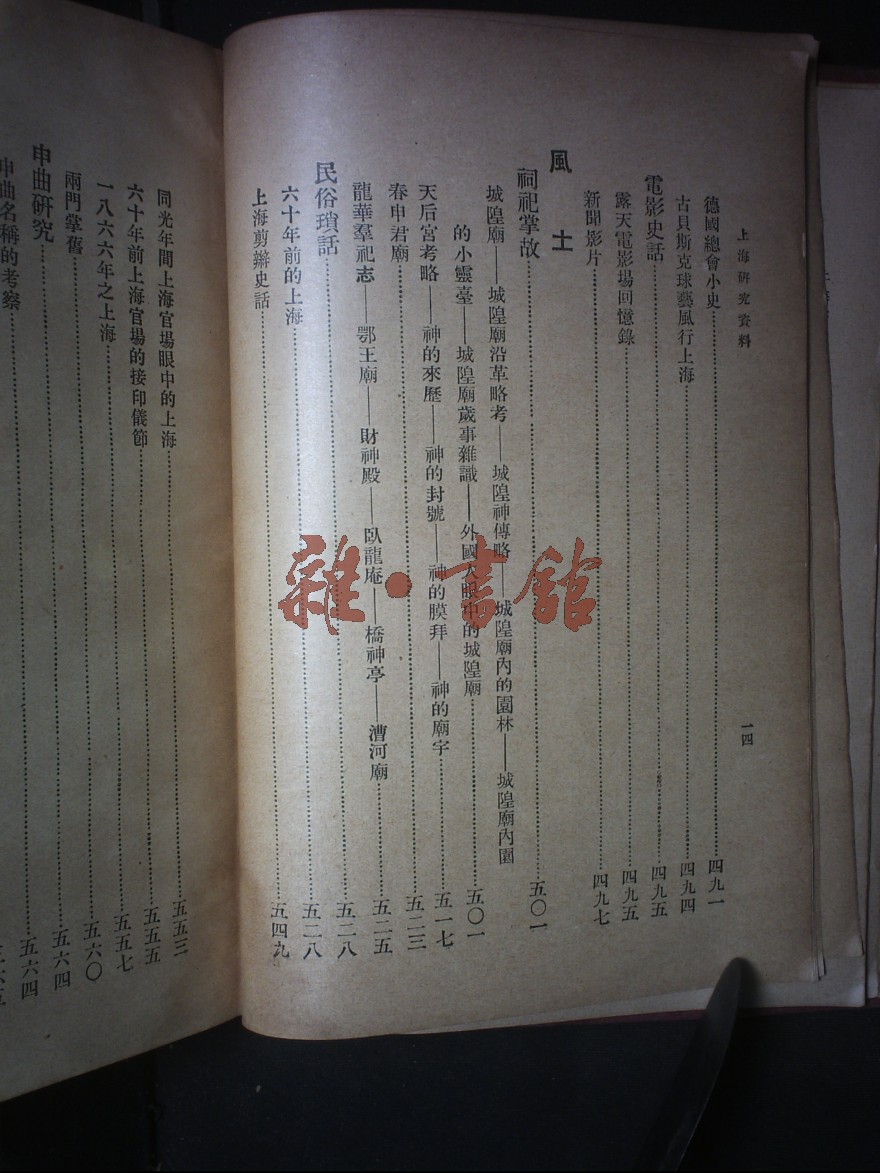 上海研究資料
一四
德國總會小史…四九一
古貝斯克球藝風行上海…四九四
電影史話…四九五
露天電影場回憶錄…四九五
新聞影片…四九七
風土
祠祀掌故…五〇一
城隍廟——城隍廟沿革略考——城隍神傳略——城隍廟內的園林——城隍廟內園
的小靈臺——城隍廟歲事雜識——外國人眼中的城隍廟…五〇一
天后宮考略——神的來歷——神的封號——神的膜拜——神的廟宇…五一七
春申君廟…五二三
龍華羣祀志——鄂王廟——財神殿——臥龍庵——橋神亭——漕河廟…五二五
民俗瑣話…五二八
六十年前的上海…五二八
上海剪辮史話…五四九
同光年間上海官場眼中的上海…五五三
六十年前上海官場的接印儀節…五五五
一八六六年之上海…五五七
兩門掌舊…五六〇
申曲研究…五六四
申曲名稱的考察…五六四
雜·書館